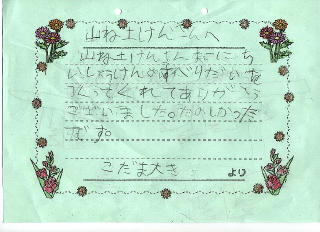 山ね土けんさんへ
山ね土けんさんまいにち
いっしょうけんめすべりだいを
つくってくれてありがとう
ございました。たのしかった
です。
こだま大き より